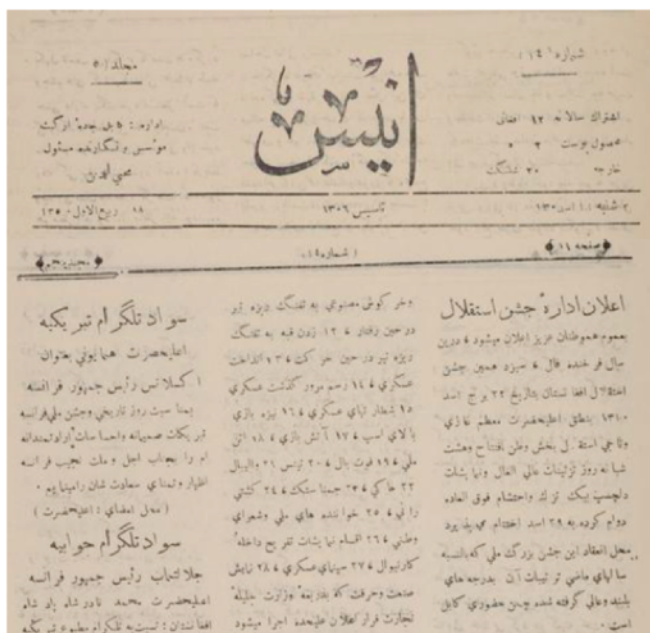 شماره ۱۴
انیس
مجلد ۵۰
اشتراک سالانه ۱۲ افغانی
محصول پوست ۳
خارجه ۲۰ شلنگ
اداره: کابل جاده ارگ
موسس و نگارنده مسئول
محی الدین
تاسیس ۱۳۰۶
۱۸ ربیع الاول ۱۳۵۰
صفحه ۱۱
اعلان ادارهٔ جشن استقلال
بعموم هموطنان عزیز اعلان میشود، درین
سال فرخنده فال، سیزدهمین جشن
استقلال افغانستان بتاریخ ۲۲ برج اسد
۱۳۱۰ بنطق اعلیحضرت معظم غازی
افتتاح و هشت
شبانه روز تزئینات عالی العال و نمایشات
دلچسپ بیک تزک و احتشام فوق العاده
دوام کرده به ۲۹ اسد اختتام می پذیرد
محل انعقاد این جشن بزرگ ملی که بالنسبه
سالهای ماضی ترتیبات آن بدرجه های
بلند و عالی گرفته شده چمن حضوری کابل
است.
وخر کوش مصنوعی به تفنگ دیزه تیر
در حین رفتار، ۱۲ زدن قبه به تفنگ
دیزه تیر در حین حرکت، ۱۳ انداخت
عسکری، ۱۴ رسم مرور گذشت عسکری
۱۵ قطار تپای عسکری، ۱۶ نیزه بازی
بالای اسپ، ۱۷ آتش بازی، ۱۸ اتن
ملی، ۱۹ فوت بال، ۲۰ تونس ۲۱ والیبال
۲۲ هاکی، ۲۳ جمناستک، ۲۴ کشتی
رانی، ۲۵ خواننده های ملی وشعرای
وطنی، ۲۶ اقسام نمایشات تفریح داخله
کارنیوال، ۲۷ سینمای عسکری، ۲۸ نمایش
صنعت و حرفت که بذریعه وزارت جلیله
تجارت قرار اعلان علیحده اجرا میشود
سواد تلگرام تبریکیه
اعلیحضرت همایونی بعنوان
اکسلانس رئیس جمهور فرانسه
بمناسبت روز تاریخی وجشن ملی فرانسه
تبریکات صمیمانه و احساسات ارادتمندانه
ام را بجناب اجل و ملت نجیب فرانسه
اظهار و تمنای سعادت شان را مینمایم.
(محل امضای: اعلیحضرت)
سواد تلگرام جوابیه
جلالتماب رئیس جمهور فرانسه
اعلیحضرت محمد نادرشاه پادشاه
افغانستان: نسبت به تلگرام مطبوع تبریکیه